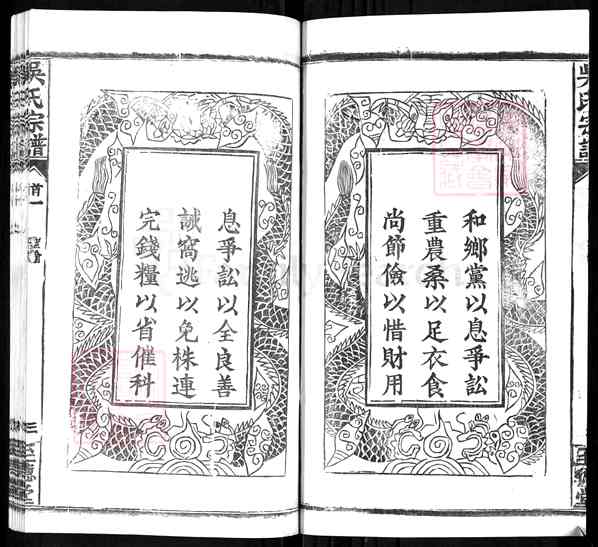 吳氏宗譜
和鄉黨以息爭訟
重農桑以足衣食
尚節儉以惜財用
息爭訟以全良善
誡窩逃以免株連
完錢糧以省催科
吳氏宗譜
首一
三